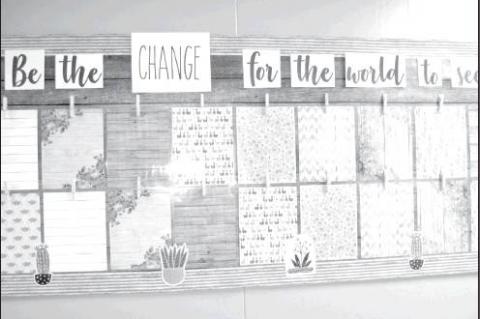 Be the CHANGE for the world to see